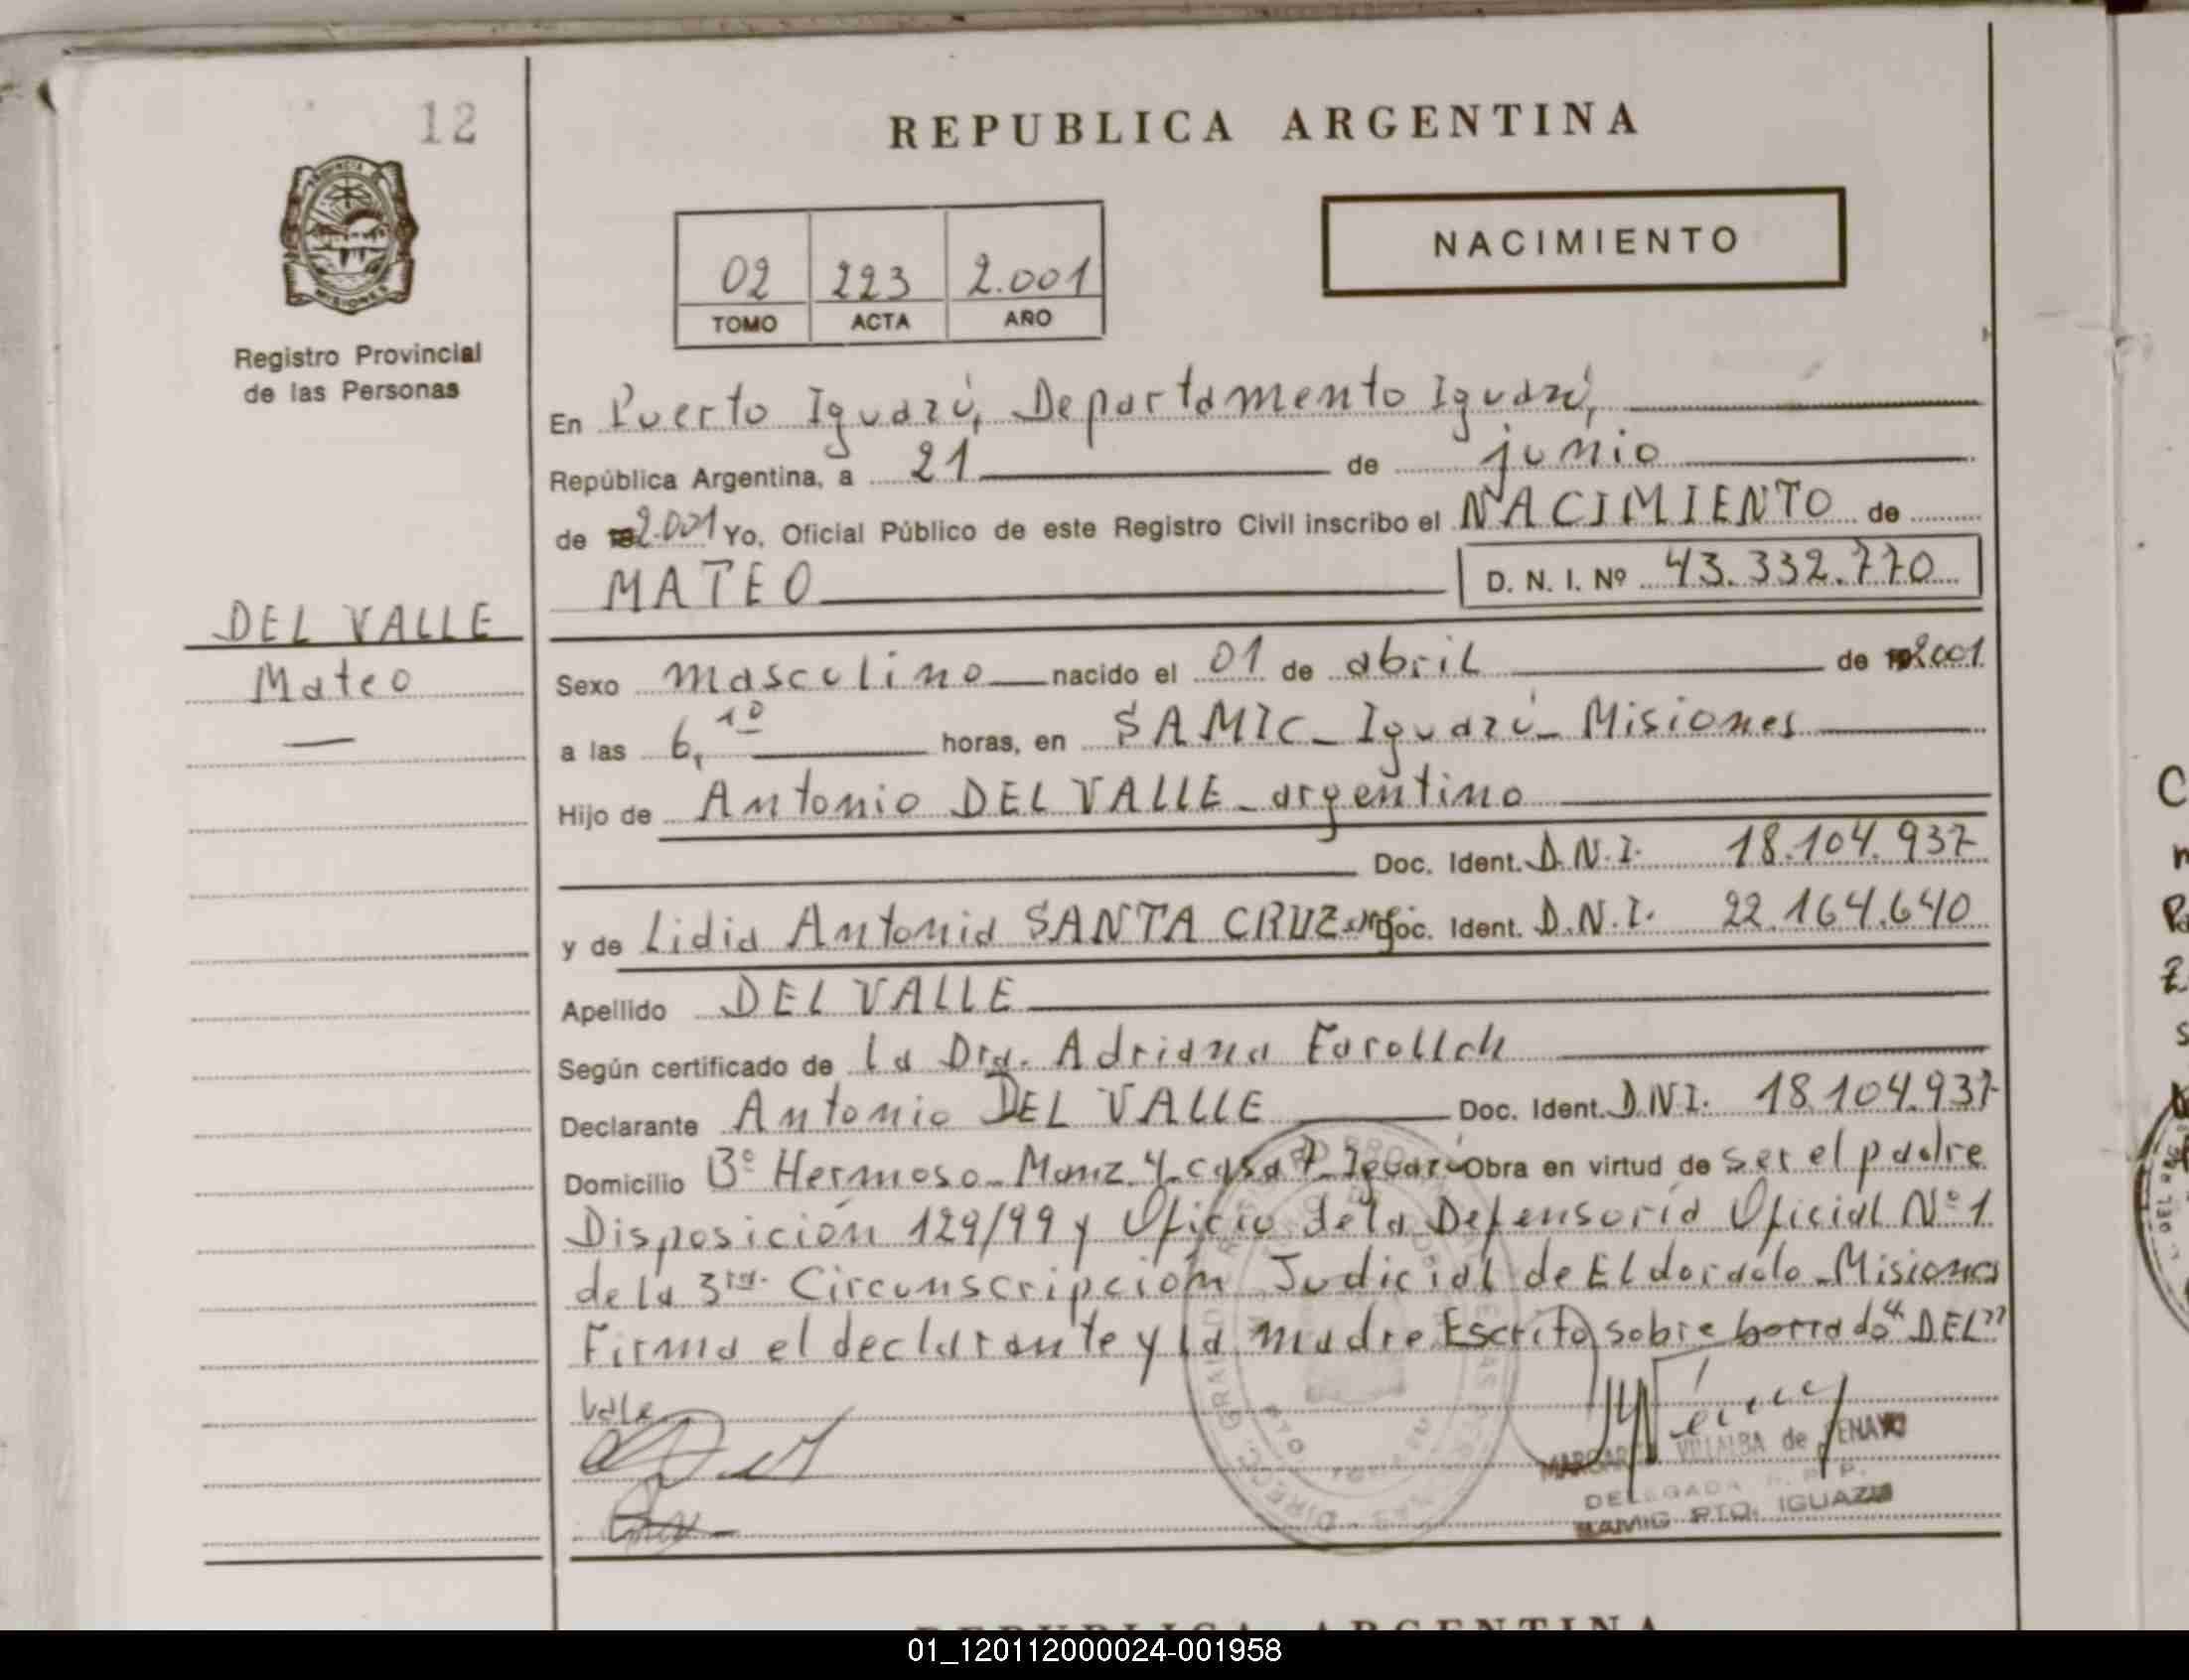 12
REPUBLICA ARGENTINA
NACIMIENTO
02 223 2.001
TOMO ACTA AÑO
PROVINCIA DE MISIONES
Registro Provincial
de las Personas
En Puerto Iguazú, Departamento Iguazú,
República Argentina, a 21 de junio
de 2.001 Yo, Oficial Público de este Registro Civil inscribo el NACIMIENTO de
MATEO D. N. I. Nº 43.332.770
DEL VALLE
Mateo
Sexo masculino nacido el 01 de abril de 2001
a las 6,10 horas, en SAMIC - Iguazú - Misiones
Hijo de Antonio DEL VALLE - argentino
Doc. Ident. D.N.I. 18.104.937
y de Lidia Antonia SANTA CRUZ Doc. Ident. D.N.I. 22.164.640
Apellido DEL VALLE
Según certificado de la Dra. Adriana
Declarante Antonio DEL VALLE Doc. Ident. D.N.I. 18.104.937
Domicilio Bº Hermoso - Manz. 4 - casa 7 - Iguazú Obra en virtud de ser el padre
Disposición 129/99 y Oficio de la Defensoría Oficial Nº 1
de la 3ra. Circunscripción Judicial de Eldorado - Misiones
Firma el declarante y la madre. Escrito sobre borrado "DEL"
Vale
MARGARITA VILLALBA de
DELEGADA R. P. P.
SAMIC PTO. IGUAZU
REPUBLICA ARGENTINA
01_120112000024-001958